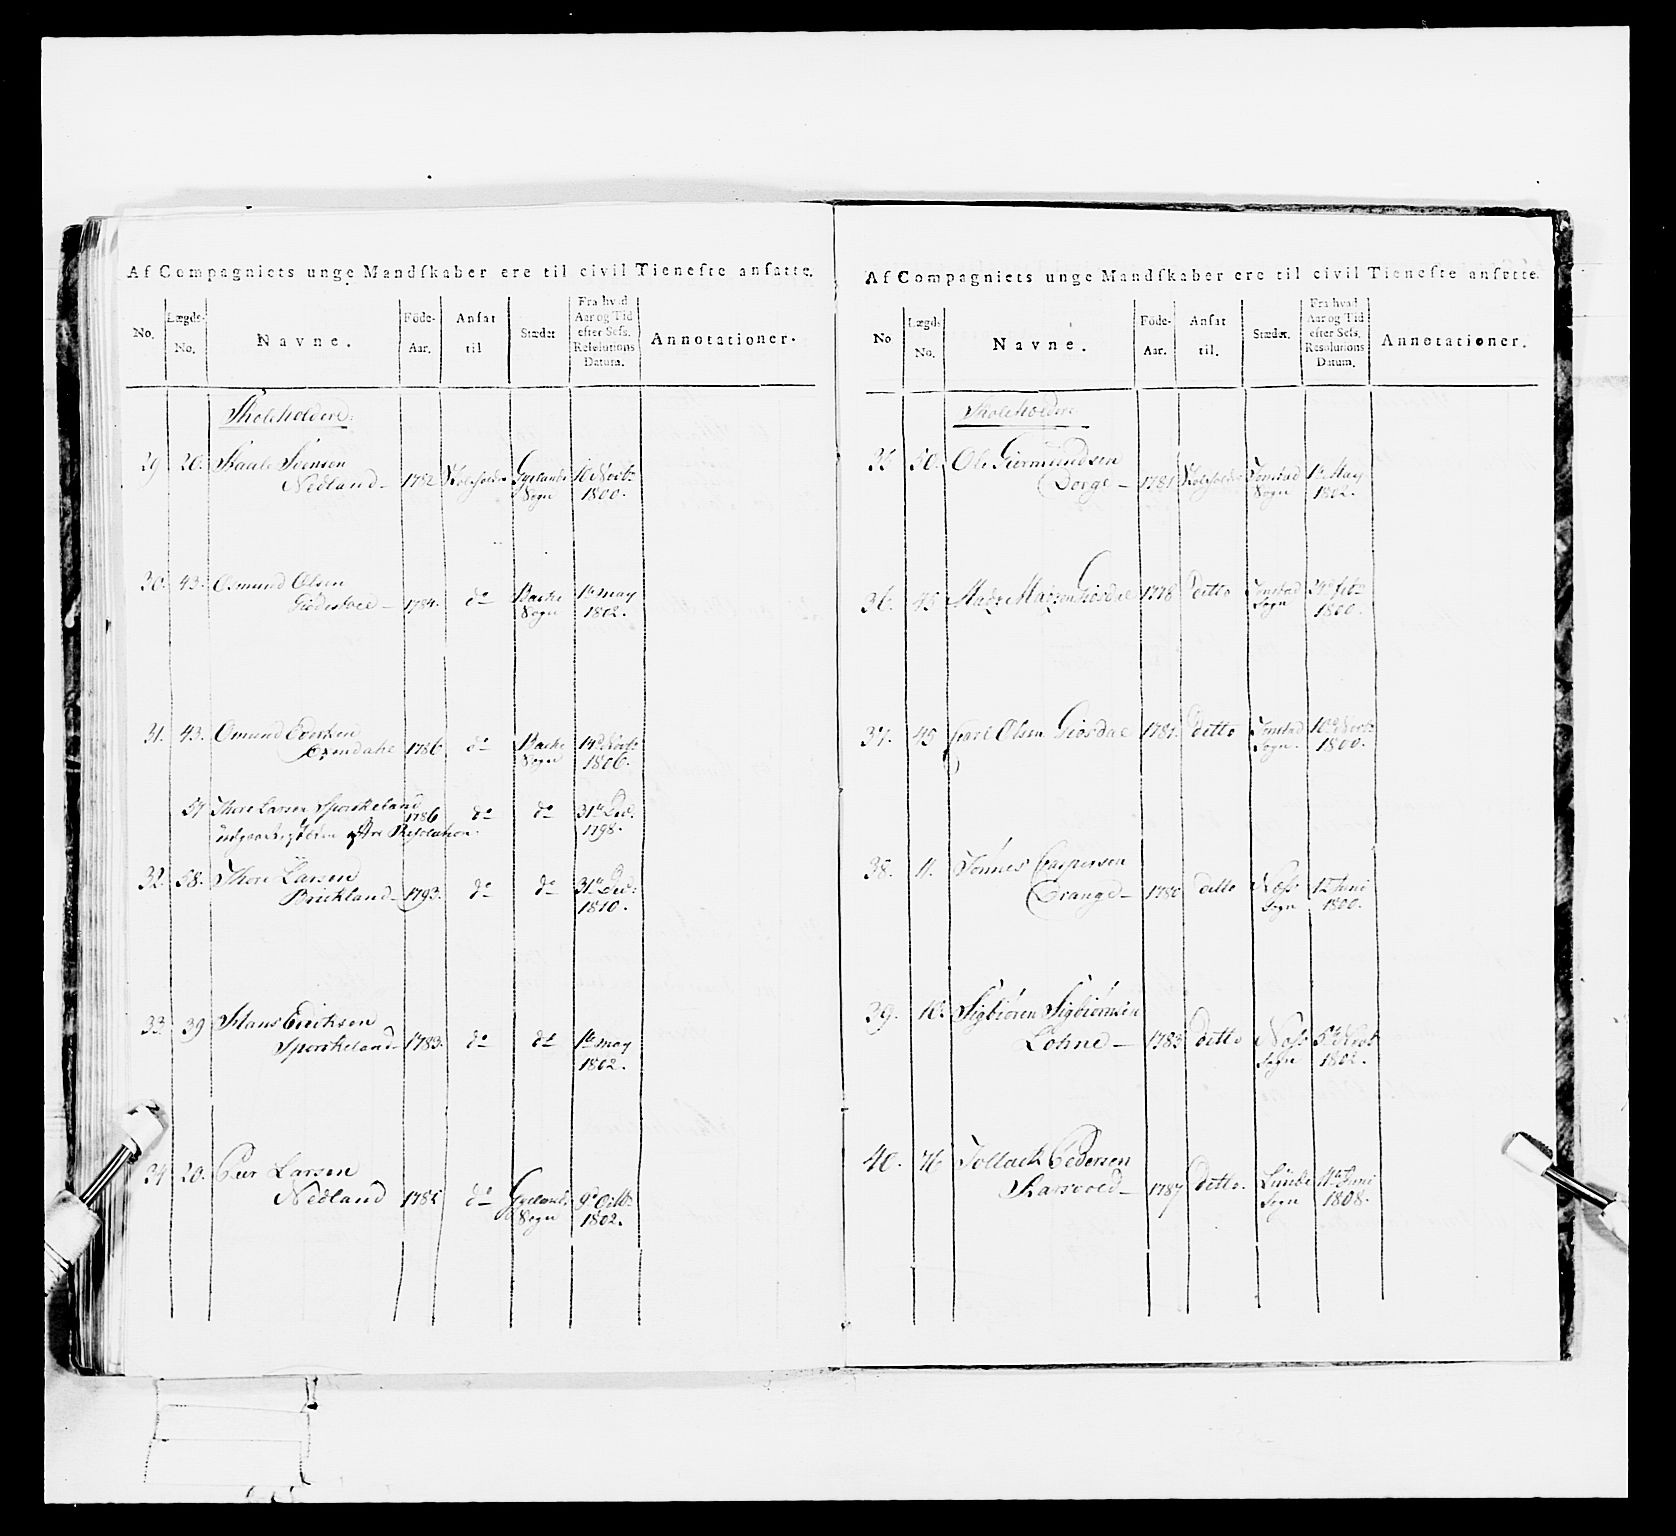 Af Compagniets unge Mandſkaber ere til civil Tieneſte anſatte.
No. Lægds-No. Navne. Föde-Aar. Anſat til Stædet Fra hvad Aar og Tid efter Seſs. Reſolutions Datum. Annotationer.
Skoleholdere
29 20. Staale Svensen
Nedland 1782 Skoleholder Gyelands Sogn 10 Novbr 1800.
30. 43. Osmund Olsen
1784. do Bache Sogn 1te may 1802.
31. 43. Omund
1786 do Bache Sogn 1806.
57 Thore Larsen Sporkeland
1786 do do 31te Decr 1798.
Resolution.
32. 58. Thore Larsen
Brickland 1793. do do 31te Decr 1810.
33. 39 Hans Erichsen
Sporkeland 1783. do do 1te may 1802.
34 20. Peer Larsen
Nedland 1785 do Gyelands Sogn 9de Octbr 1802.
Af Compagniets unge Mandſkaber ere til civil Tieneſte anſatte.
No Lægds-No. Navne. Föde-Aar. Anſat til. Stædet. Fra hvad Aar og Tid efter Seſs. Resolutions Datum. Annotationer.
Skoleholdere
35 50. Ole Giermundsen
Dorge 1781 Skoleholder Tonstad Sogn 1te May 1802.
36. 45 Giosdal 1778 ditto Tonstad Sogn 24de febr 1800.
37. 45 Carl Olsen Giosdal 1781. ditto Tonstad Sogn. 10de Novbr 1800.
38. 11. Tönnes Caspersen
Drange 1780 ditto Næss Sogn 12 Juni 1800.
39. 10. Sigbiören Sigbiörnsen
Lohne 1783 ditto Næss Sogn 1802.
40. 76 Tollack Pedersen
1787 ditto. Lunde Sogn Juni 1808.